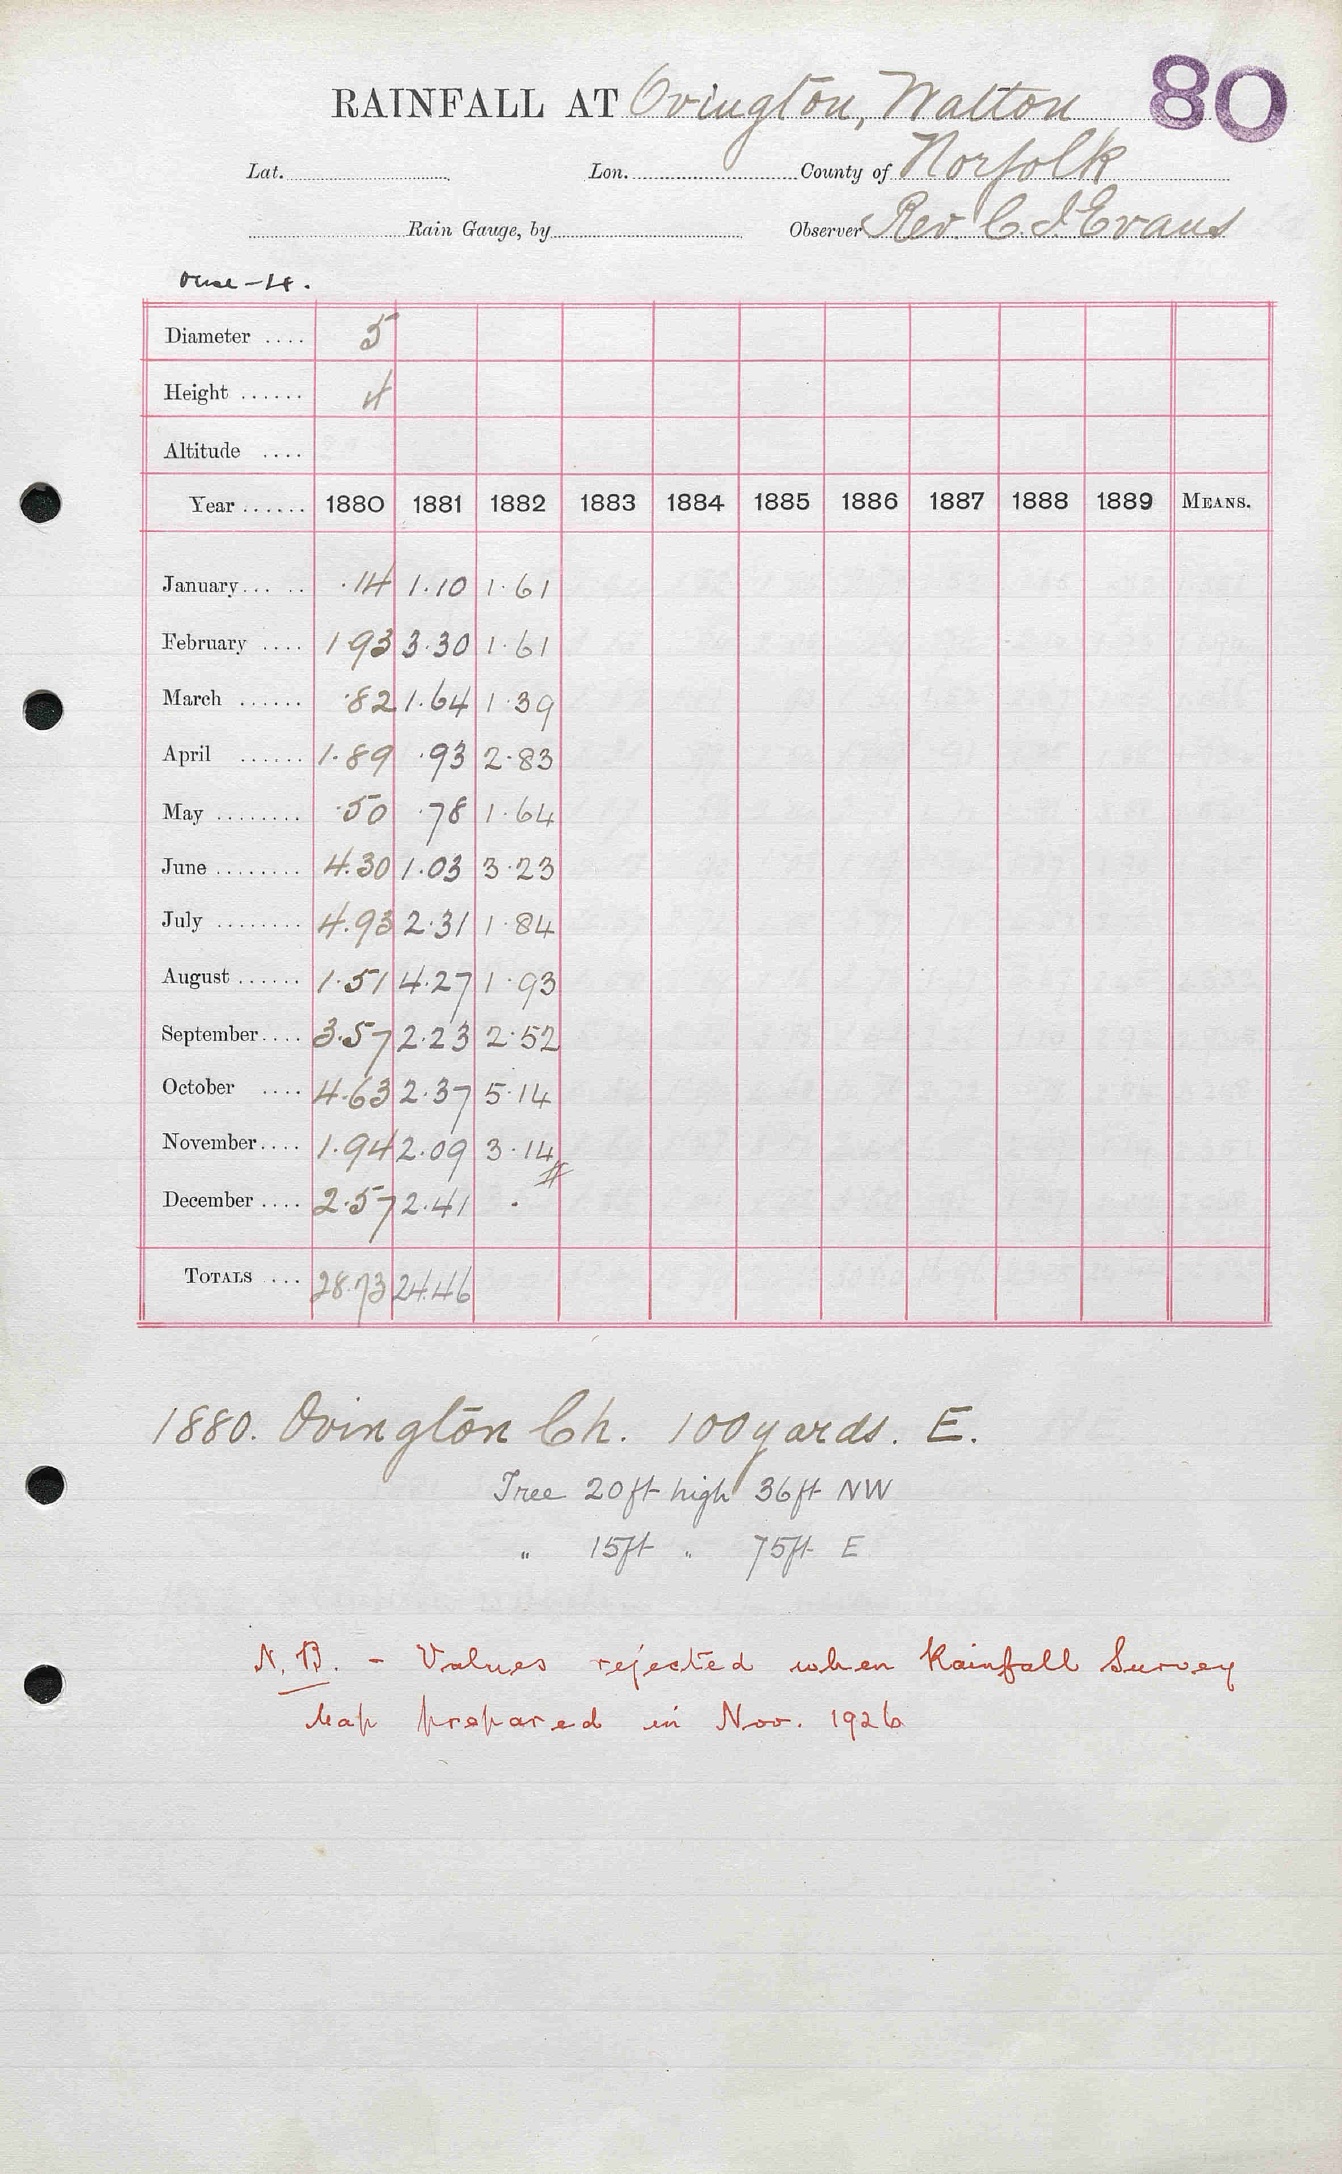 80
RAINFALL AT Ovington, Watton
Lat. Lon. County of Norfolk
Rain Gauge, by Observer Rev. C. J. Evans
Diameter .... 5
Height ...... 4
Altitude ....
Year ...... 1880 1881 1882 1883 1884 1885 1886 1887 1888 1889 MEANS.
January... .. .14 1.10 1.61
February .... 1.93 3.30 1.61
March ...... .82 1.64 1.39
April ...... 1.89 .93 2.83
May ........ .50 .78 1.64
June ........ 4.30 1.03 3.23
July ........ 4.93 2.31 1.84
August ...... 1.51 4.27 1.93
September.... 3.57 2.23 2.52
October .... 4.63 2.37 5.14
November.... 1.94 2.09 3.14
December .... 2.57 2.41 .
TOTALS ... 28.73 24.46
1880. Ovington Ch. 100 yards. E.
Tree 20ft high 36ft NW
" 15ft " 75ft E
N.B. - Values rejected when Rainfall Survey
Map prepared in Nov. 1926